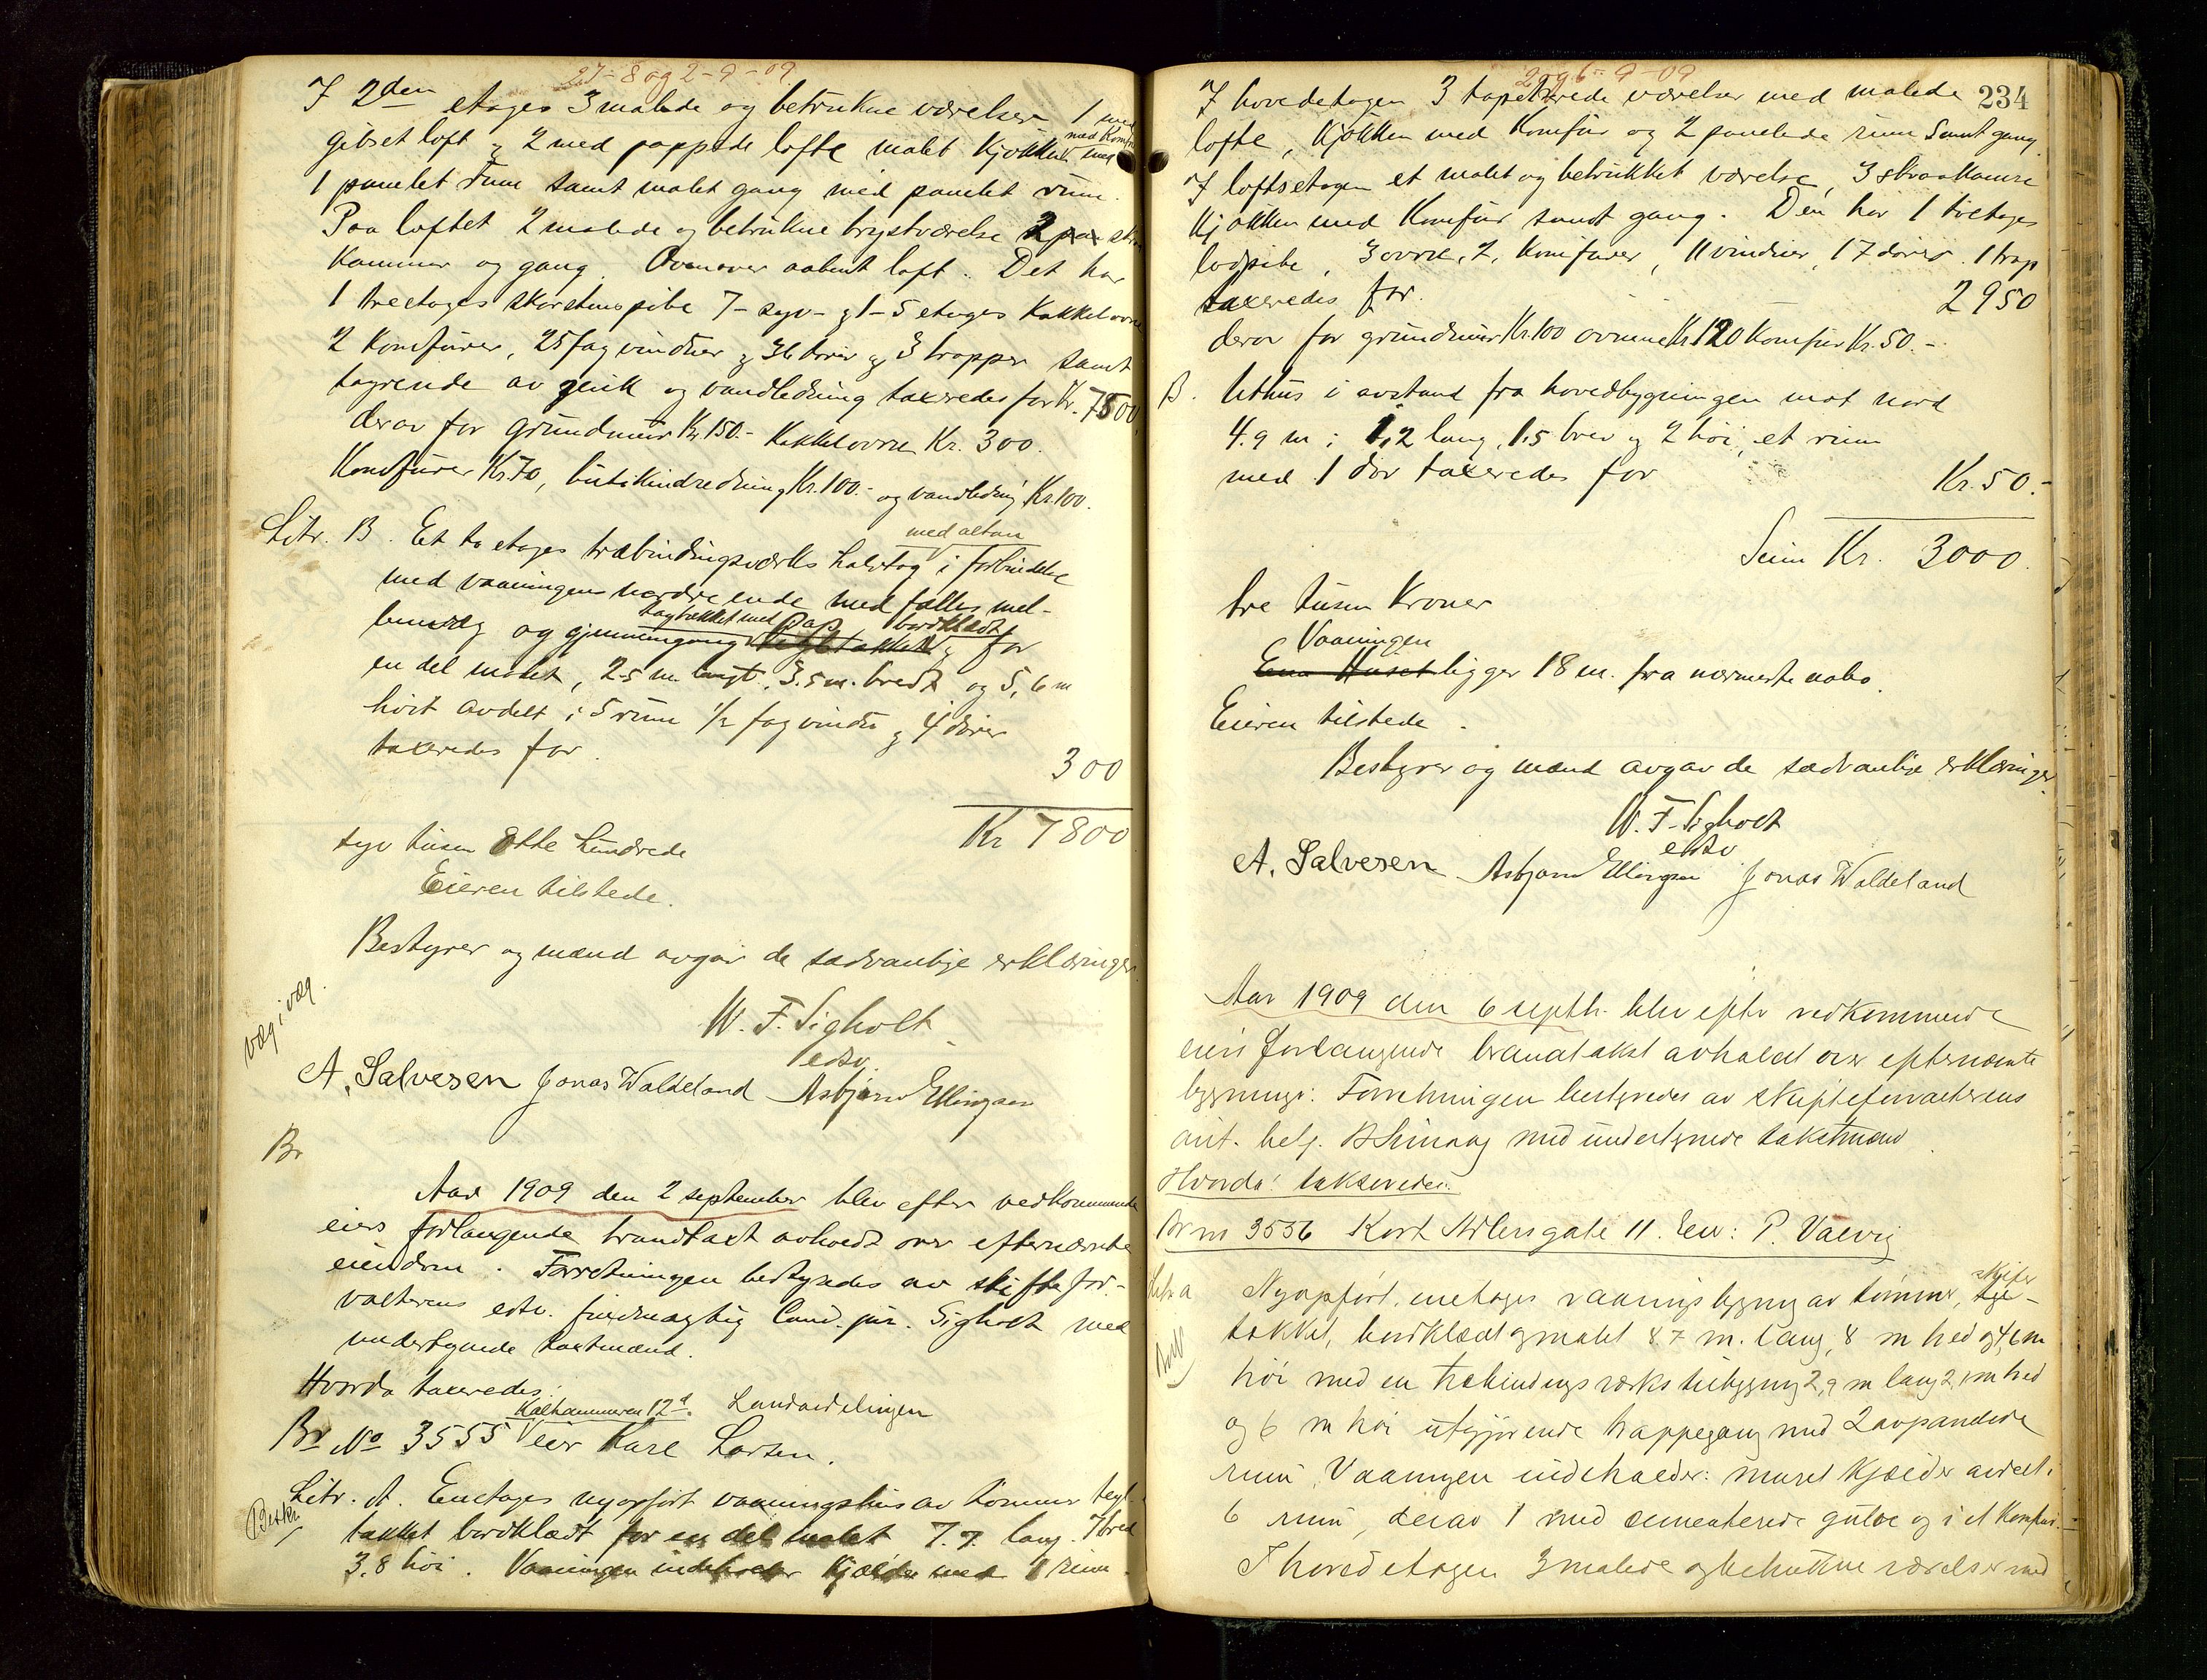 27-8 og 2-9-09
I 2den etages 3 malede og betrukne værelser 1 med
gibset loft og 2 med pappede lofte malet kjøkken med Komfur
1 panelet rum samt malet gang med panelet rum.
Paa loftet 2 malede og betrukne brystværelse 2
kammer og gang. Ovenover aabent loft. Det har
1 treetages skorstenspibe 7- syv- og 1- 5 etages kakkelovne
2 Komfurer, 25 fag vinduer og 36 dører og 3 trapper samt
tagrende av zink og vandledning taxeredes for Kr. 7500
derav for grundmur Kr. 150.- Kakkelovne Kr. 300.
Komfurer Kr. 70, butikindredning Kr. 100.- og vandledning Kr. 100.
Litr. B. Et to etages træbindingsværks halvtag med altan i forbindelse
med vaaningens nordre ende med fælles mel-
lemvæg og gjennemgang tagtækket med pap bordklædt for
en del malet, 2.5 m. langt, 3.5 m. bredt og 5,6 m
høit avdelt i 5 rum 1/2 fag vindu og 4 dører
taxeredes for.
300
Kr 7800
syv tusen otte hundrede
Eieren tilstede.
Bestyrer og mænd avgav de sædvanlige erklæringer
væg i væg.
W. F. Sigholt
edsv.
A. Salvesen Jonas Waldeland Asbjørn Ellingsen
Br
Aar 1909 den 2 september blev efter vedkommende
eiers forlangende brandtaxt avholdt over efternævnte
eiendom. Forretningen bestyredes av skiftefor-
valterens edsv. fuldmægtig Cand. jur. Sigholt med
undertegnede taxtmænd.
Hvorda taxeredes:
Kalhammeren 12d. Landavdelingen
Br No 3555 eier Karl Larsen.
Beskr.
Litr. A. Enetages nyopført vaaningshus av tømmer tegl
tækket bordklædt for en del malet 7.7. lang. 7 bred
3.8 høi. Vaaningen indeholder Kjælder med 1 rum
2 og 6-9-09
234
I hovedetagen 3 tapetserede værelser med malede
lofte, Kjøkken med Komfur og 2 panelede rum samt gang.
I loftsetagen et malet og betrukket værelse, 3 skraakamre
Kjøkken med Komfur samt gang. Den har 1 toetages
lodpibe, 3 ovne, 2, Komfurer, 11 vinduer, 17 dører. 1 trap
taxeredes for. 2950
derav for grundmur Kr. 100 ovnene Kr. 120 Komfur Kr. 50.-
B. Uthus i avstand fra hovedbygningen mot nord
4.9 m; 1,2 lang, 1.5 brev og 2 høi, et rum
med 1 dør taxeredes for
Kr. 50.-
Sum Kr. 3000.
tre tusen Kroner
Vaaningen
Huset ligger 18 m. fra nærmeste nabo.
Eieren tilstede.
Bestyrer og mænd avgav de sædvanlige erklæringer.
W. F. Sigholt
edsv
A. Salvesen Asbjørn Ellingsen Jonas Waldeland
Aar 1909 den 6 septb. blev efter vedkommende
eiers forlangende brandtakst avholdt over efternævnte
bygninger: Forretningen bestyredes av skifteforvalterens
aut. med undertegnede takstmænd.
Hvorda: takseredes:
Br no 3556 Kort Adlersgate 11. Eier: P. Valvig
Litr a Nyopført, enetages vaaningsbygning av tømmer, skifer
tækket, bordklædt og malet 8.7 m. lang, 8 m bred og 4,6 m
høi med en træbindingsværks tilbygning 2,9 m lang 2,1 m bred
og 6 m høi utgjørende trappegang med 2 avpanelede
rum. Vaaningen indeholder: muret kjælder avdelt i
6 rum, derav 1 med cementerede gulve og i et Komfur.
I hovedetagen 3 malede og betrukne værelser med